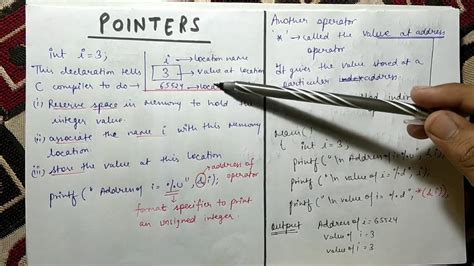 POINTERS
int i=3;
i → location name
3 → value at location
65524 → loca
This declaration tells
C compiler to do →
(i) Reserve space in memory to hold the
integer value.
(ii) associate the name i with this memory
location
(iii) store the value at this location
address of
operator
printf (" Address of i= %u", &i);
format specifier to print
an unsigned integer.
Another operator
'*' → called the value at address
operator
It gives the value stored at a
particular address.
called indi
main()
{ int i = 3;
printf ("In Address of i =
printf ("In Value of i =
printf ("In value of i = %d", *(&i));
Output
Address of i = 65524
value of i = 3
value of i = 3